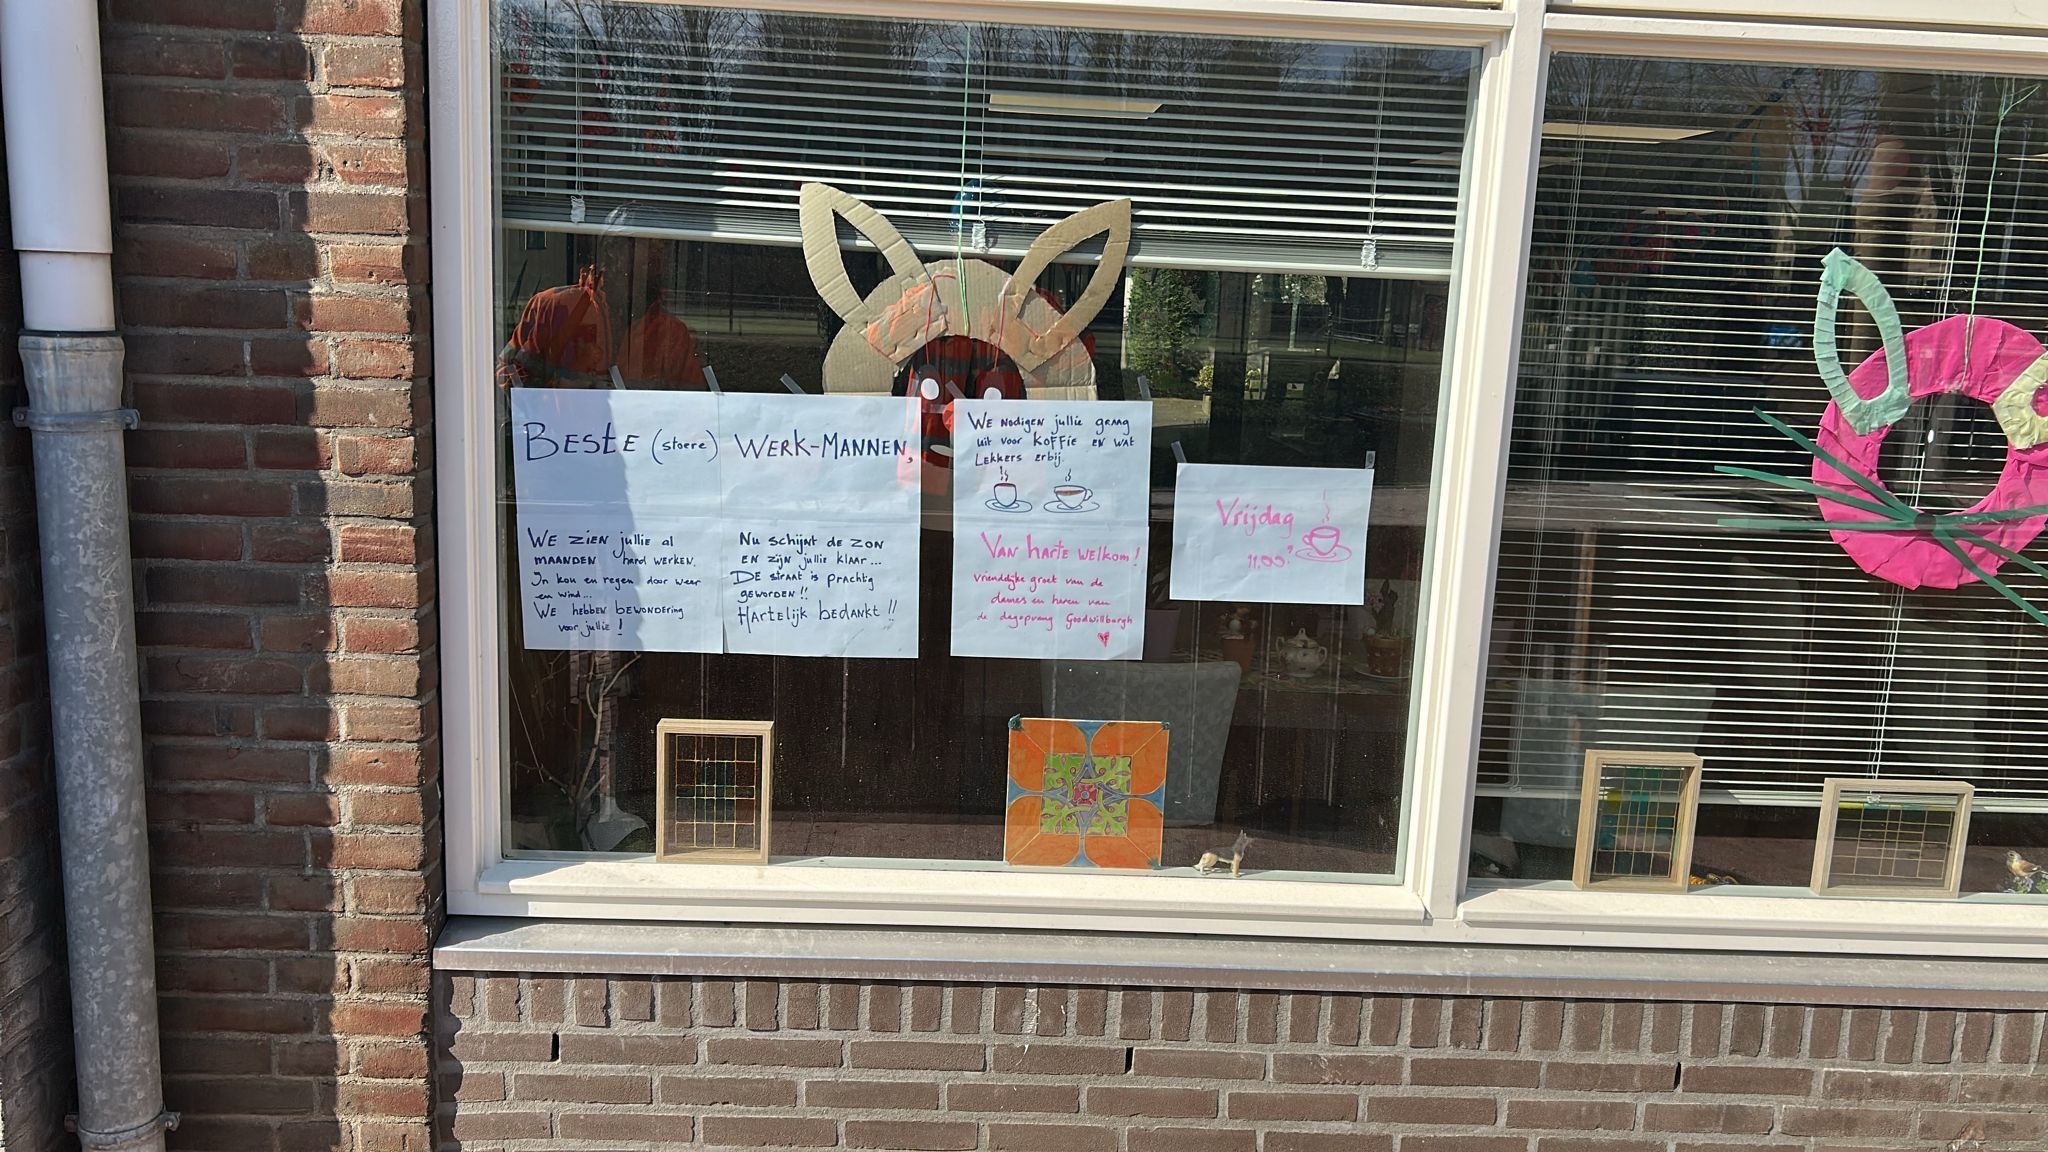 BESTE (stoere) WERK-MANNEN,
WE ZIEN jullie al
MAANDEN hard WERKEN.
In kou en regen door weer
en wind...
WE HEBBEN BEWONDERING
voor jullie!
Nu schijnt de ZON
EN ZIJN jullie KLAAR...
DE straat is prachtig
GEWORDEN!!
HARTELIJK BEDANKT!!
WE NODIGEN jullie graag
uit voor KOFFIE EN WAT
LEKKERS ERBIJ.
VAN harte welkom!
vriendelijke groet van de
dames en heren van
de dagopvang Goodwillburgh
Vrijdag
11.00